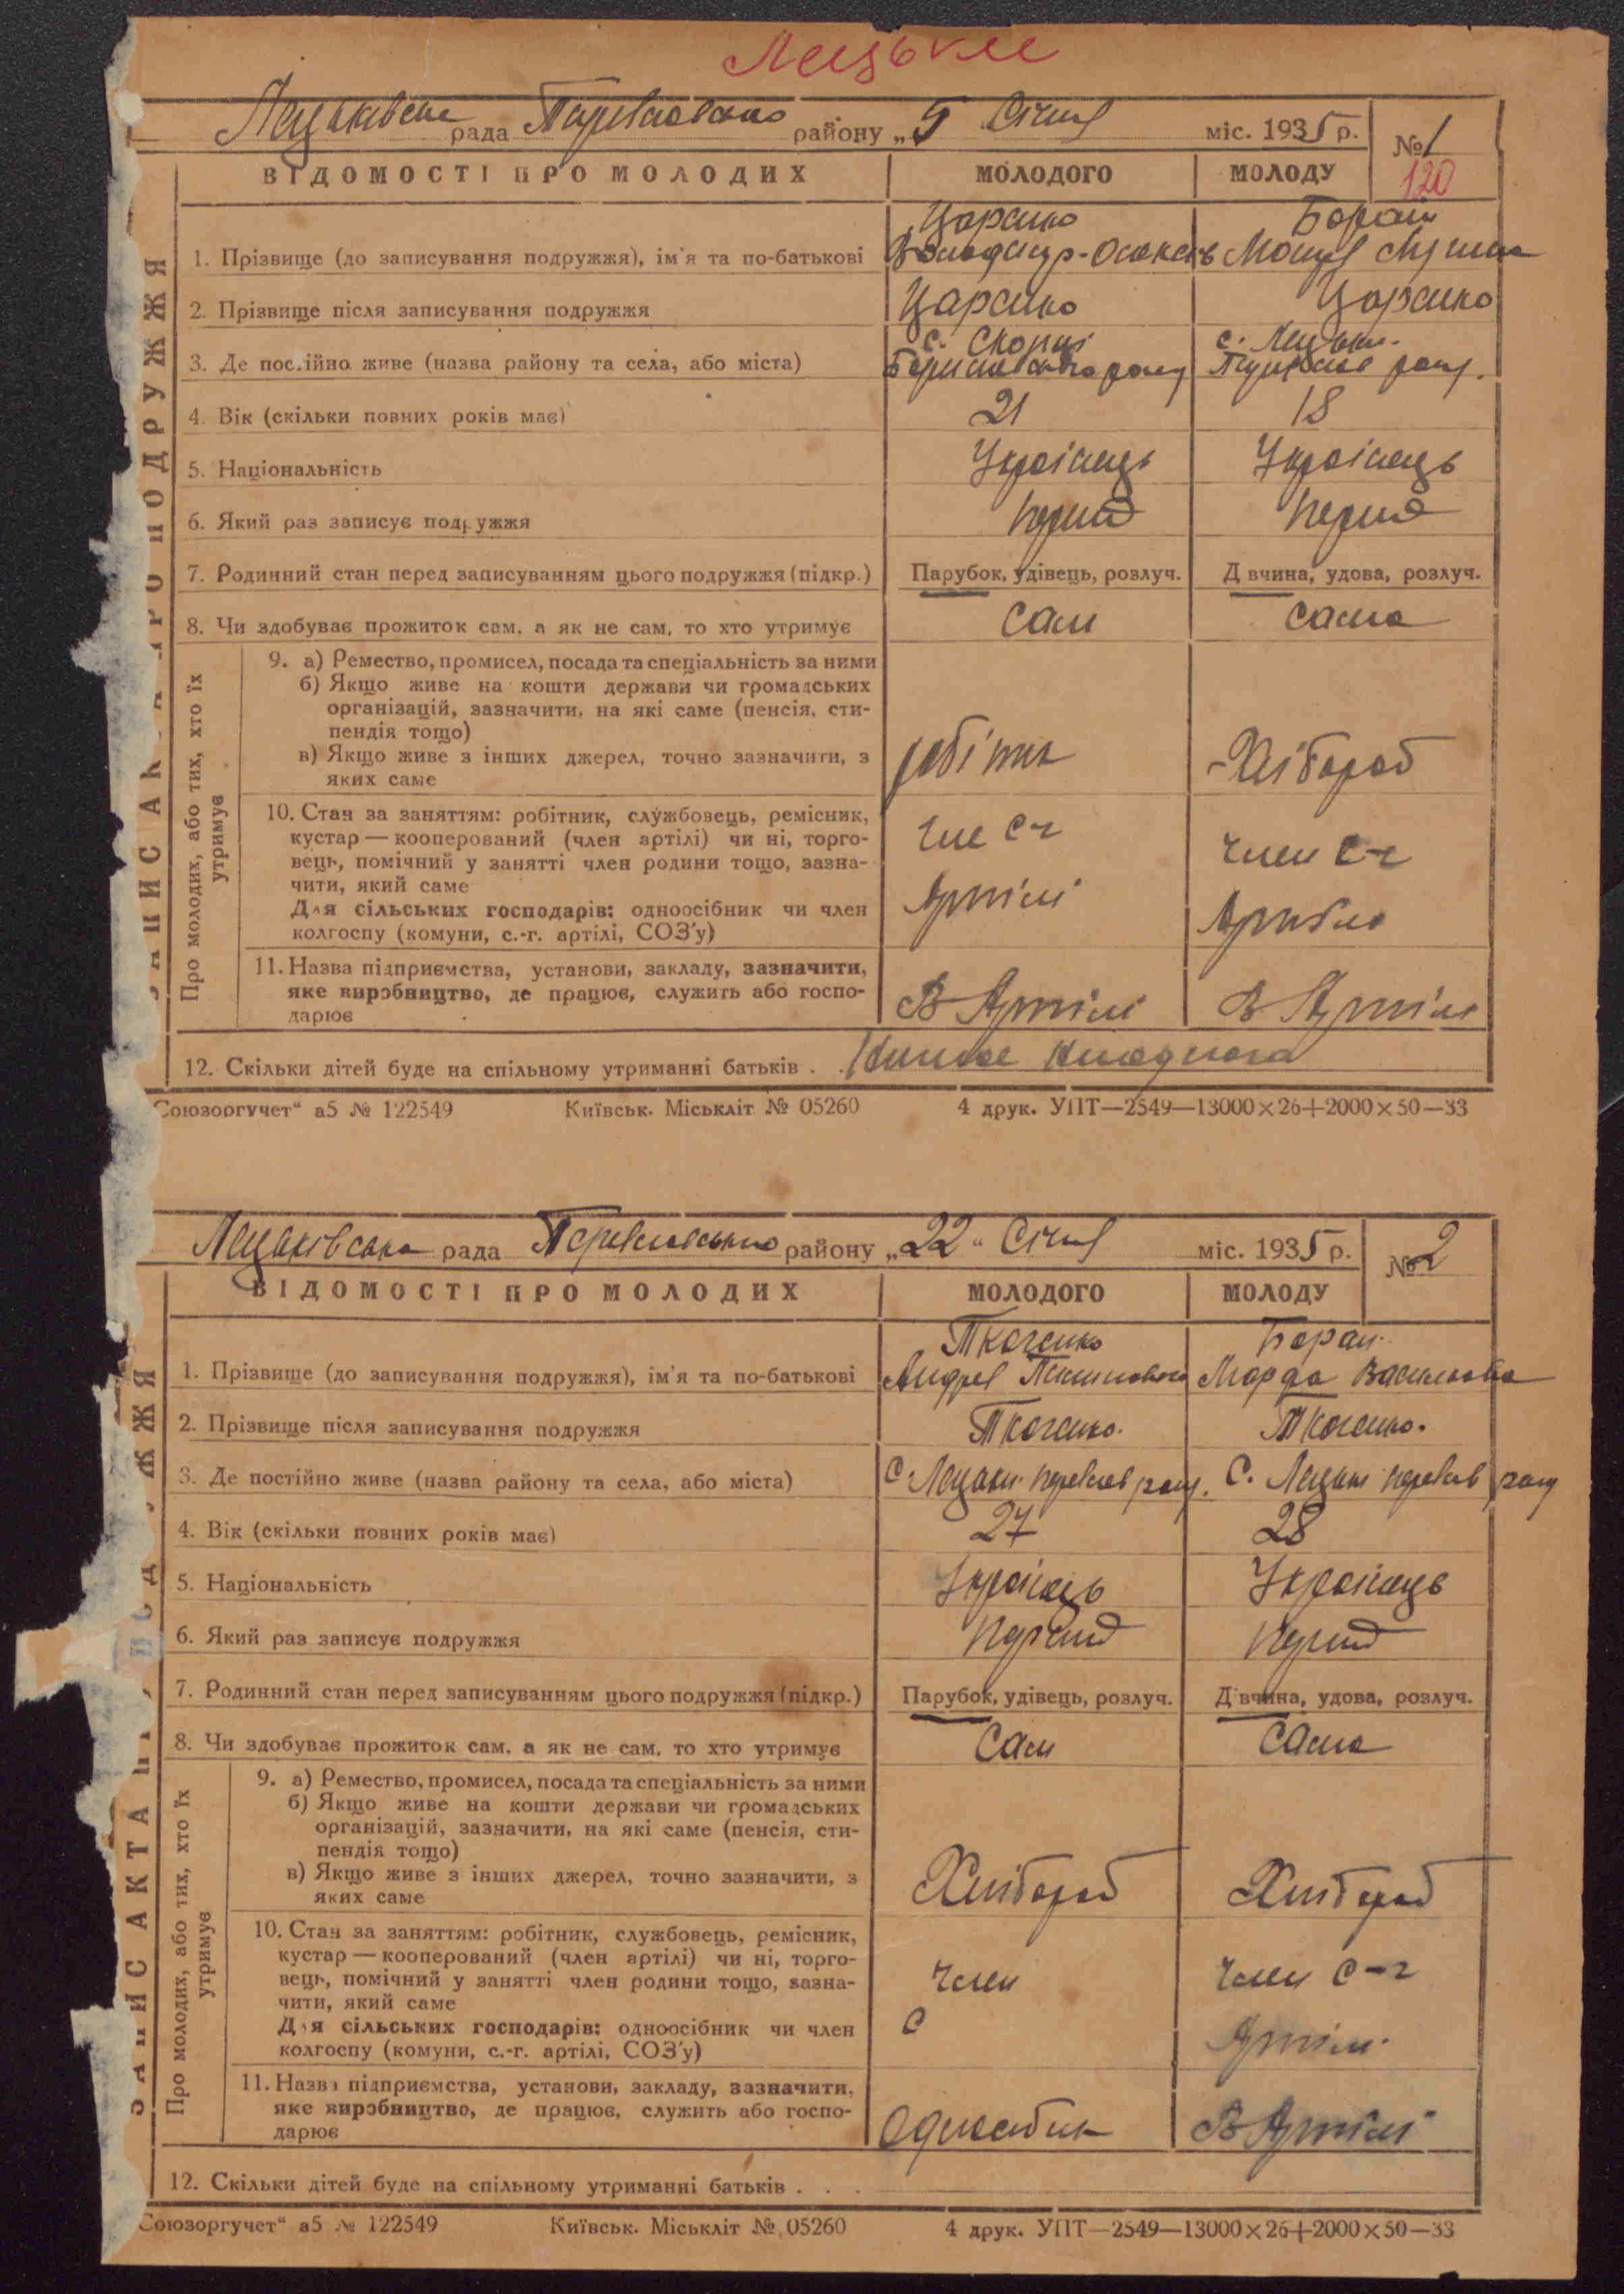 Лецьки
Лецьківська рада Переяславського району „5 Січня міс. 1935 р. № 1
120
ВІДОМОСТІ ПРО МОЛОДИХ МОЛОДОГО МОЛОДУ
ЗАПИС АКТА ПРО ПОДРУЖЖЯ
Царенко
1. Прізвище (до записування подружжя), ім'я та по-батькові
2. Прізвище після записування подружжя Царенко Царенко
с. с. Лецьки
3. Де постійно живе (назва району та села, або міста)
4. Вік (скільки повних років має) 21 18
5. Національність Українець Українець
6. Який раз записує подружжя перший перший
7. Родинний стан перед записуванням цього подружжя (підкр.) Парубок, удівець, розлуч. Дівчина, удова, розлуч.
8. Чи здобуває прожиток сам, а як не сам, то хто утримує сам сама
Про молодих, або тих, хто їх утримує
9. а) Ремество, промисел, посада та спеціальність за ними
б) Якщо живе на кошти держави чи громадських
організацій, зазначити, на які саме (пенсія, сти-
пендія тощо)
в) Якщо живе з інших джерел, точно зазначити, з
яких саме
робітник Хлібороб
10. Стан за заняттям: робітник, службовець, ремісник,
кустар — кооперований (член артілі) чи ні, торго-
вець, помічний у занятті член родини тощо, зазна-
чити, який саме
Для сільських господарів: одноосібник чи член
колгоспу (комуни, с.-г. артілі, СОЗ'у)
член с-г член с-г
Артілі Артілі
11. Назва підприємства, установи, закладу, зазначити,
яке виробництво, де працює, служить або госпо-
дарює
В Артілі В Артілі
12. Скільки дітей буде на спільному утриманні батьків . .
Союзоргучет“ а5 № 122549 Київськ. Міськліт № 05260 4 друк. УПТ—2549—13000×26+2000×50—33
Лецьківська рада Переяславського району „22“ Січня міс. 1935 р. № 2
ВІДОМОСТІ ПРО МОЛОДИХ МОЛОДОГО МОЛОДУ
ЗАПИС АКТА ПРО ПОДРУЖЖЯ
Ткаченко Баран
1. Прізвище (до записування подружжя), ім'я та по-батькові Андрей Марфа Василівна
2. Прізвище після записування подружжя Ткаченко. Ткаченко.
3. Де постійно живе (назва району та села, або міста) С. Лецьки переяслав району. С. Лецьки переяслав району
4. Вік (скільки повних років має) 27 28
5. Національність Українець Українець
6. Який раз записує подружжя перший перший
7. Родинний стан перед записуванням цього подружжя (підкр.) Парубок, удівець, розлуч. Дівчина, удова, розлуч.
8. Чи здобуває прожиток сам, а як не сам, то хто утримує сам сама
Про молодих, або тих, хто їх утримує
9. а) Ремество, промисел, посада та спеціальність за ними
б) Якщо живе на кошти держави чи громадських
організацій, зазначити, на які саме (пенсія, сти-
пендія тощо)
в) Якщо живе з інших джерел, точно зазначити, з
яких саме
Хлібороб Хлібороб
10. Стан за заняттям: робітник, службовець, ремісник,
кустар — кооперований (член артілі) чи ні, торго-
вець, помічний у занятті член родини тощо, зазна-
чити, який саме
Для сільських господарів: одноосібник чи член
колгоспу (комуни, с.-г. артілі, СОЗ'у)
член член с-г
с Артілі.
11. Назва підприємства, установи, закладу, зазначити,
яке виробництво, де працює, служить або госпо-
дарює
Одноосібник В Артілі
12. Скільки дітей буде на спільному утриманні батьків . . .
Союзоргучет“ а5 № 122549 Київськ. Міськліт № 05260 4 друк. УПТ—2549—13000×26+2000×50—33